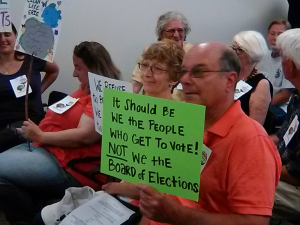 WE REFUSE
It Should Be
We the People
Who Get to Vote!
Not We the
Board of Elections